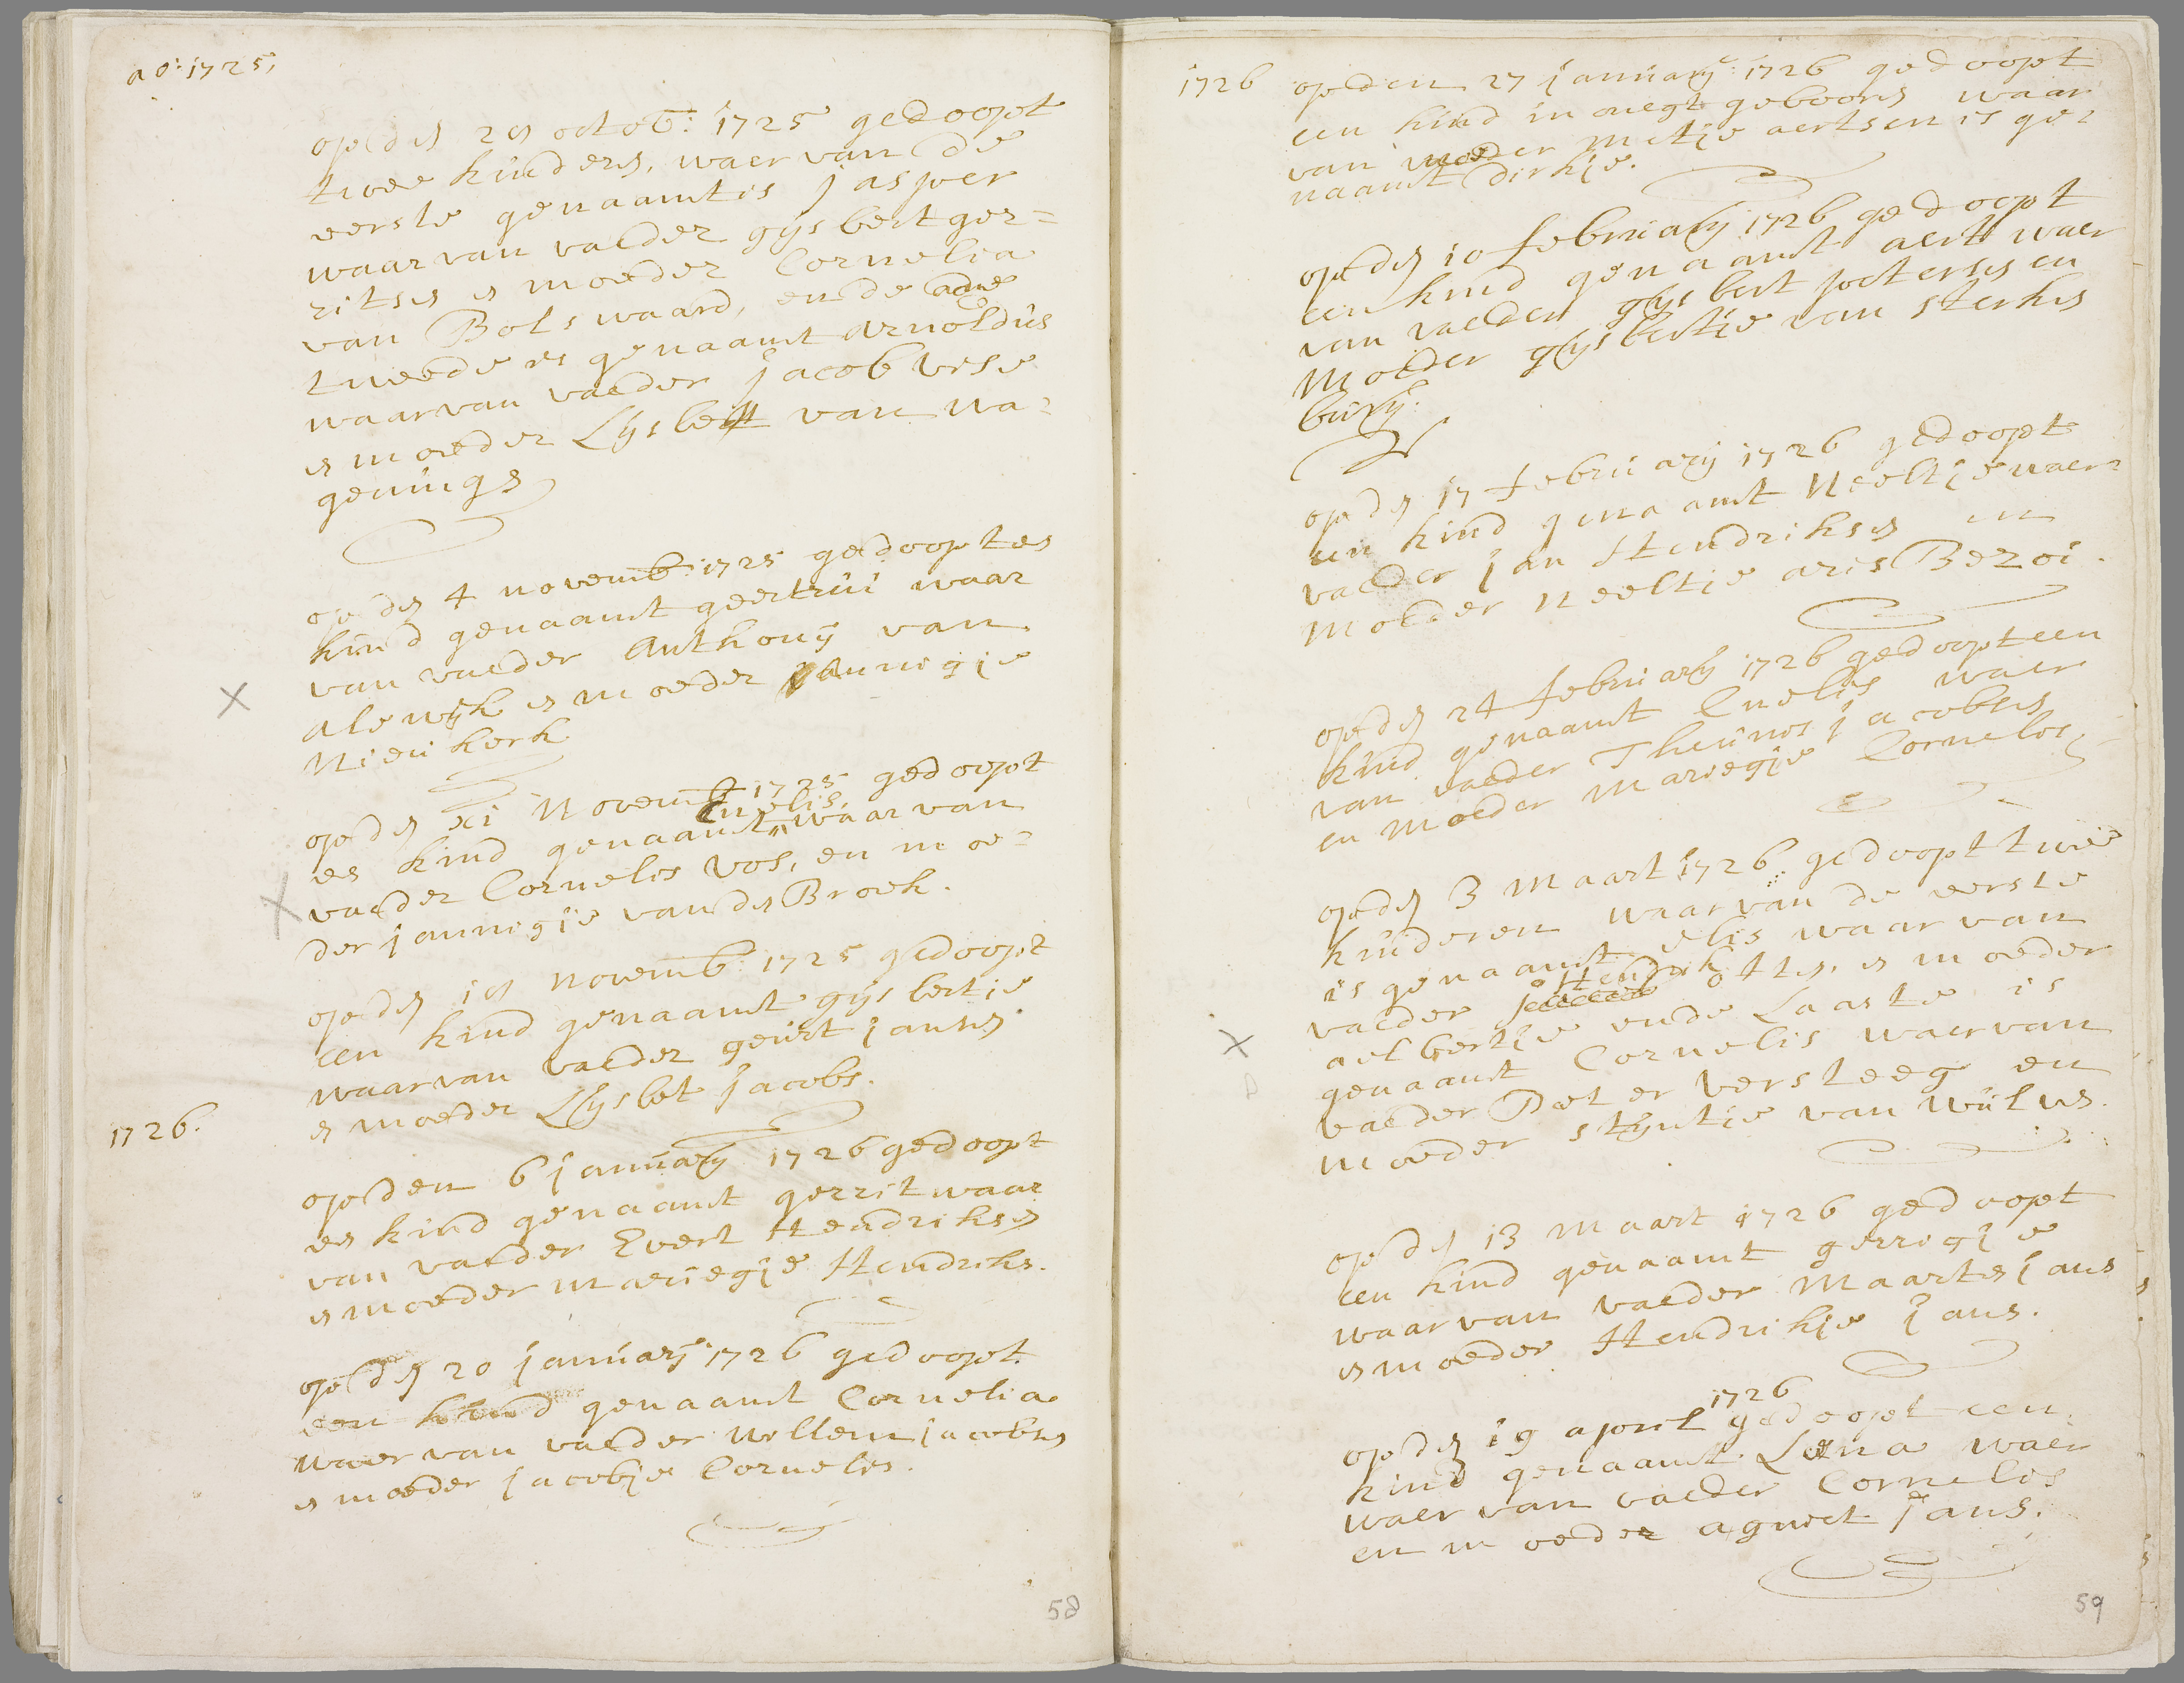 ao: 1725,
op den 29 octob: 1725 gedoopt
twee kinders, waer van de
eerste genaamt is Jasper
waar van vaeder gijsbert ger=
ritsen en moeder Cornelia
van Bolswaard, ende de
tweede is genaamt Arnoldus
waarvan vaeder Jacob vese
en moeder Lijsbett van wa=
genings
op den 4 novemb: 1725 gedoopt een
kind genaamt geertrui waar
van vaeder Anthonij van
alewijk en moeder Jannigie
Nieukerk
op den xi Novemb 1725 gedoopt
Cnelis,
een kind genaamt " waar van
vaeder Cornelis Vos, en moe=
der jannigie van den Broek.
op den 19 novemb: 1725 gedoopt
een kind genaamt gijsbertie
waarvan vaeder geurt jansen
en moeder Lijsbet Jacobs.
1726.
op den 6 januarij 1726 gedoopt
een kind genaamt gerrit waar
van vaeder Evert Hendriksen
en moeder marijegie Hendriks.
op den 20 januarij 1726 gedoopt
een kind genaamt Cornelia
waer van vaeder Willem jacobsen
en moeder jacobje Cornelis.
58
1726
op den 27 januarij 1726 gedoopt
een kind in onegt geboorn waar
van moeder metje aertsen is ge=
naamt Dirkje.
op den 10 februarij 1726 gedoopt
een kind genaamt aert waer
van vaeder gijsbert peetersen en
Moeder gijsbertie van sterken
burg:
op den 17 februarij 1726 gedoopt
een kind genaamt Neeltje waer=
vaeder jan Hendriksen en
Moeder neeltie aris Bezoi.
op den 24 februarij 1726 gedoopt een
kind genaamt Cnelis waer
van vaeder Theunis jacobsen
en moeder marregje Cornelis
op den 3 Maart 1726 gedoopt twee
kinderen waar van de eerste
is genaamt elis waar van
vaeder Hendrik otten, en moeder
aelbertje ende Laaste is
genaamt Cornelis waer van
vaeder Peter Versteeg en
moeder stijntie van wulven.
op den 13 Maart 1726 gedoopt
een kind genaamt gerregje
waar van vaeder Maarten jans
en moeder Hendrikje jans.
1726
op den 19 april gedoopt een
kind genaamt Lena waer
waer van vaeder Cornelis
en moeder agniet jans.
59